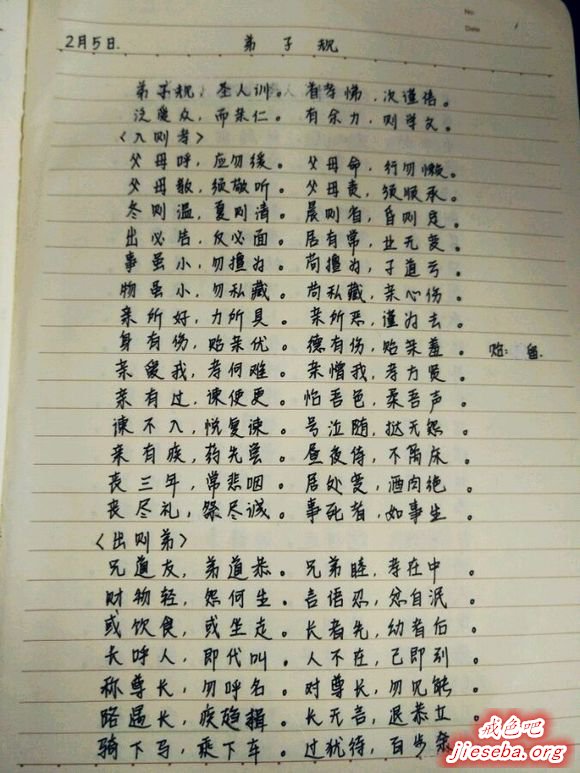 No.
Date
2月5日. 弟子规
弟子规,圣人训。首孝悌,次谨信。
泛爱众,而亲仁。有余力,则学文。
〈入则孝〉
父母呼,应勿缓。父母命,行勿懒。
父母教,须敬听。父母责,须顺承。
冬则温,夏则清。晨则省,昏则定。
出必告,反必面。居有常,业无变。
事虽小,勿擅为。苟擅为,子道亏。
物虽小,勿私藏。苟私藏,亲心伤。
亲所好,力所具。亲所恶,谨为去。
身有伤,贻亲忧。德有伤,贻亲羞。贻:留.
亲爱我,孝何难。亲憎我,孝方贤。
亲有过,谏使更。怡吾色,柔吾声。
谏不入,悦复谏。号泣随,挞无怨。
亲有疾,药先尝。昼夜侍,不离床。
丧三年,常悲咽。居处变,酒肉绝。
丧尽礼,祭尽诚。事死者,如事生。
〈出则弟〉
兄道友,弟道恭。兄弟睦,孝在中。
财物轻,怨何生。言语忍,忿自泯。
或饮食,或坐走。长者先,幼者后。
长呼人,即代叫。人不在,己即到。
称尊长,勿呼名。对尊长,勿见能。
路遇长,疾趋揖。长无言,退恭立。
骑下马,乘下车。过犹待,百步余
戒色吧
jieseba.org